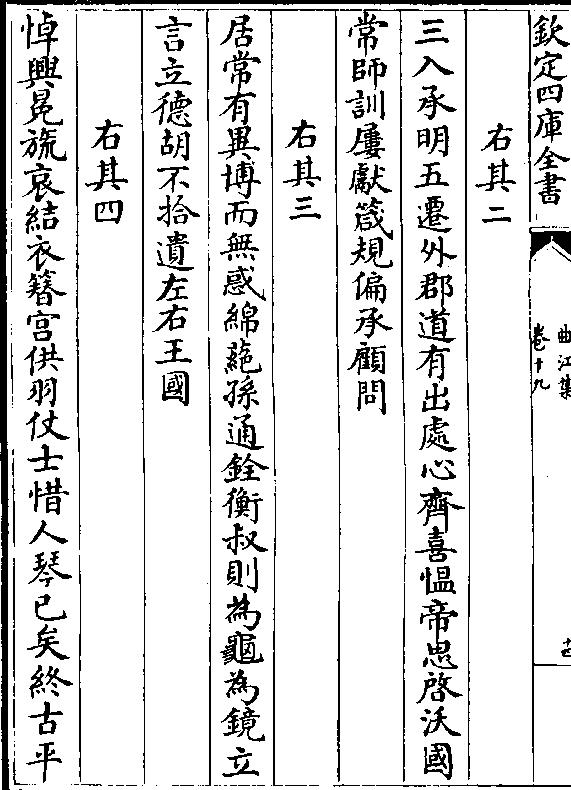 欽定四庫全書
曲江集
卷十九
右其二
三入承明五遷外郡道有出處心齊喜愠帝思啓沃國
常師訓屢獻箴規偏承顧問
右其三
居常有異博而無惑綿蕝孫通銓衡叔則為龜為鏡立
言立德胡不拾遺左右王國
右其四
悼興冕旒哀結衣簪宫供羽仗士惜人琴已矣終古平